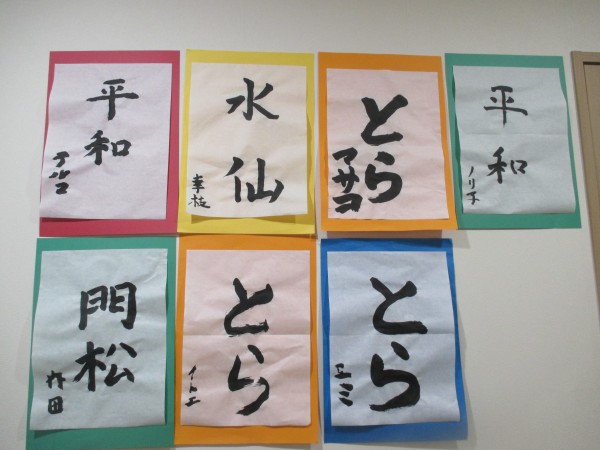 平和
テルコ
水仙
幸枝
とら
マサコ
平和
ノリ子
門松
とら
イトエ
とら
エミ